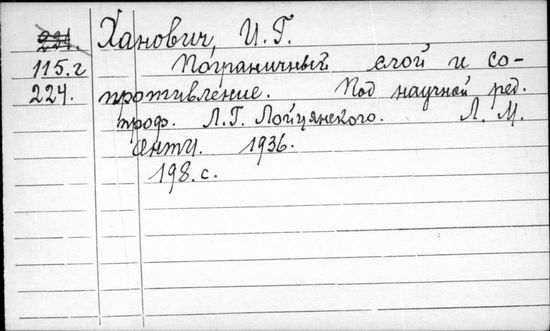 221. Ханович, И. Г.
115.г Пограничный слой и со-
224. противление. Под научной ред.
проф. Л. Г. Лойцянского. Л. М.
Онти. 1936.
198. с.